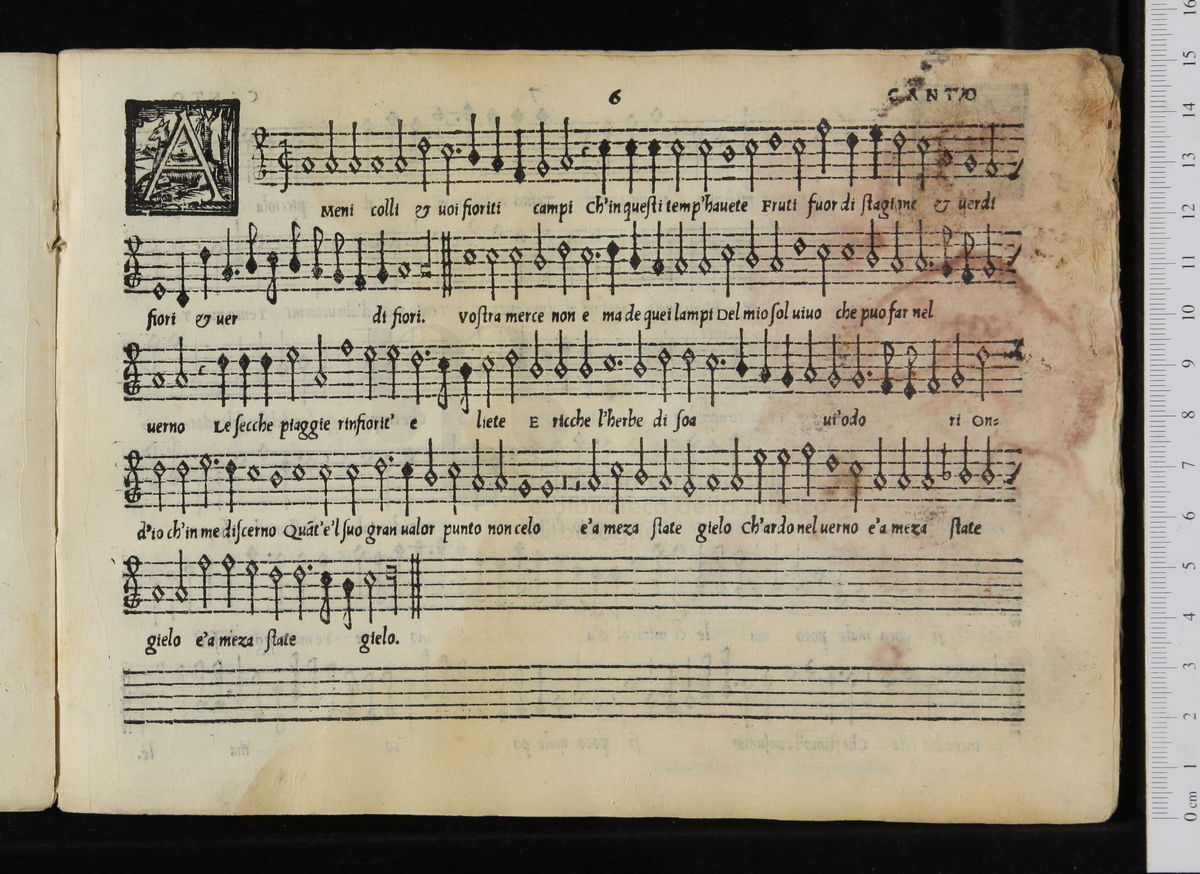 6 CANTO
A Meni colli & uoi fioriti campi Ch'in questi temp'hauete Fruti fuor di stagione & uerdi
fiori & uer di fiori. Vostra merce non e ma de quei lampi Del mio sol uiuo che puo far nel
uerno Le secche piaggie rinfiorit' e liete E ricche l'herbe di soa ui'odo ri On=
d'io ch'in me discerno Quāt'e'l suo gran ualor punto non celo e'a meza state gielo Ch'ardo nel uerno e'a meza state
gielo e'a meza state gielo.
16
15
14
13
12
11
10
9
8
7
6
5
4
3
2
1
0 cm